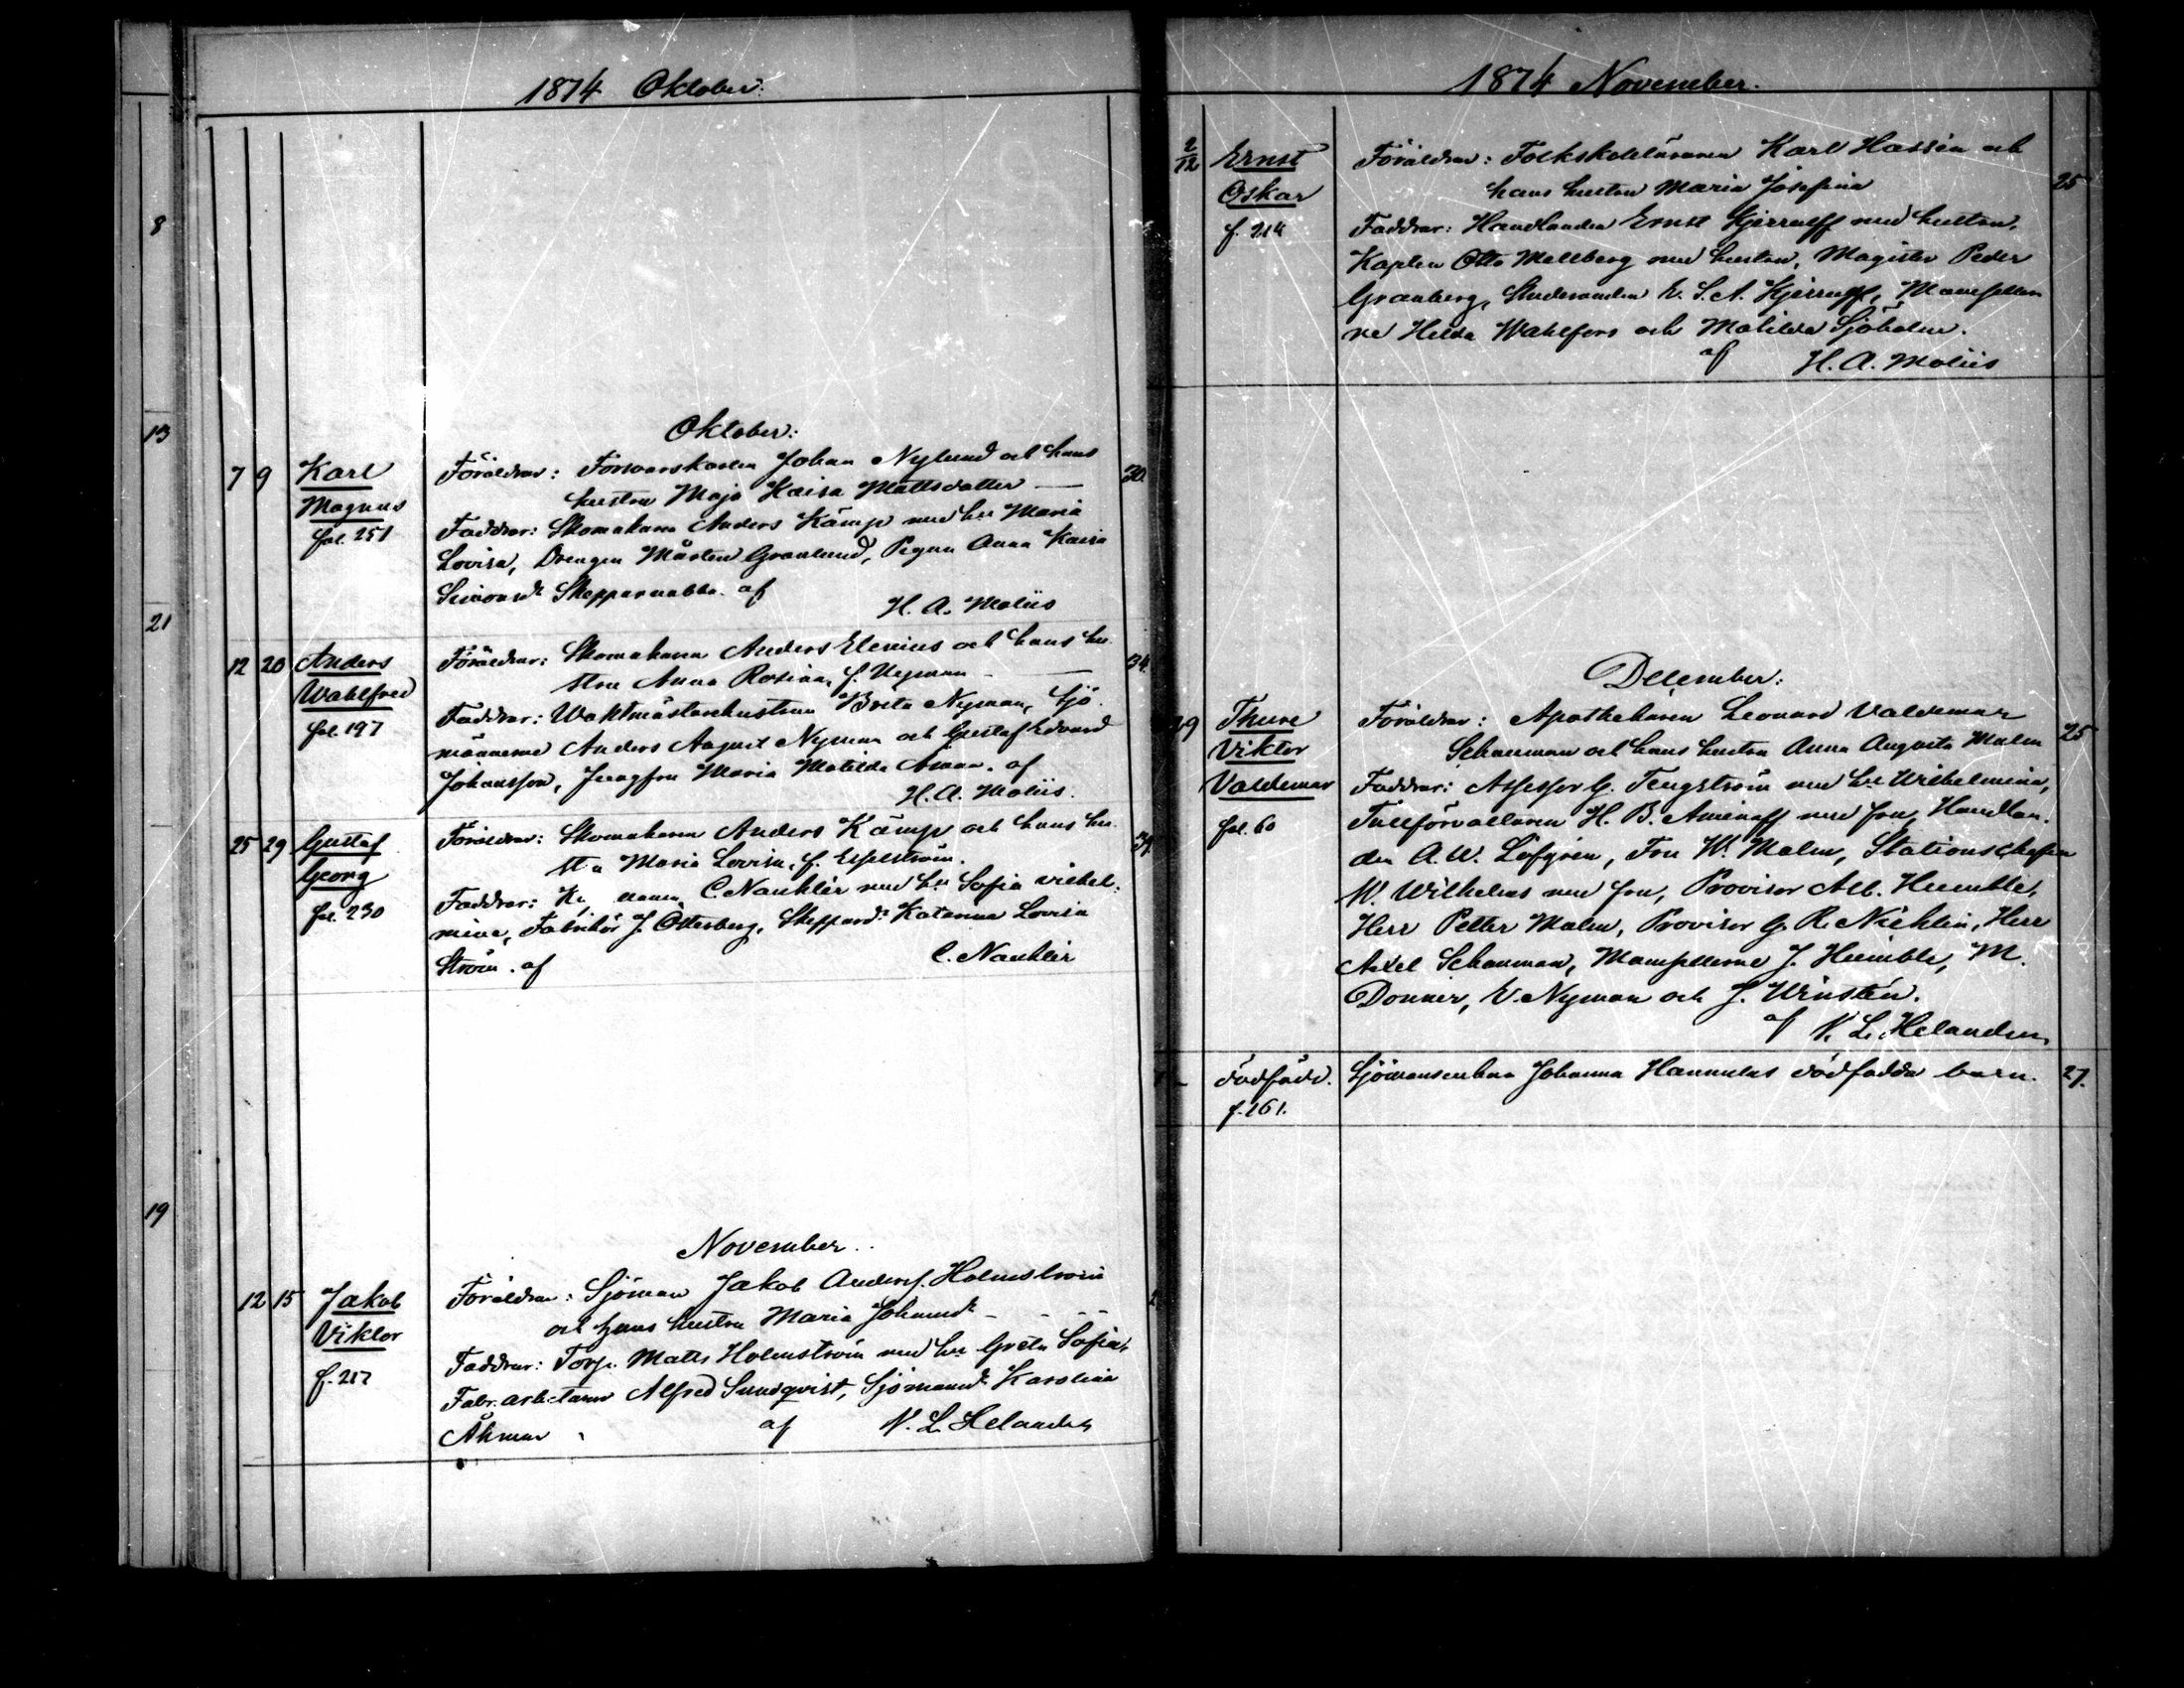 1874 Oktober:
8
13
21
19
Oktober:
7 9 Karl Föräldrar: Johan Nylund och hans 30.
Magnus hustru Maja Kaisa Mattsdotter —
fol. 251 Faddrar: Skomakaren Anders Kämp med hu Maria
Lovisa, Drengen Mårten Granlund, Pigan Anna Kaisa
Skepparnabba. af
H. A. Moliis
12 20 Anders Föräldrar: Skomakaren Anders Elenius och hans hu- 34.
Wahlfred stru Anna Rosina, f. Nyman —
fol. 197 Faddrar: Waktmästarehustrun Brita Nyman, Sjö-
männerne Anders August Nyman och Gustaf Edvard
Johansson, Jungfru Maria Matilda Åman. af
H. A. Moliis.
25 29 Gustaf Föräldrar: Skomakaren Anders Kämp och hans hu-
Georg Maria Lovisa, f.
fol. 230 Faddrar: C. Nauklér med hu Sofia Vilhel-
mina, Fabrikör J. Otterberg, Katarina Lovisa
Ström. af C. Nauklér
November.
12 15 Jakob Föräldrar: Sjöman Jakob Anderss. Holmström
Viktor och hans hustru Maria Johansdr
f. 217 Faddrar: Torp. Matts Holmström med hu Greta Sofia,
Fabr. arbetaren Alfred Sundqvist, Karolina
Åhman af N. L. Helander
1874 November.
2/12 Ernst Föräldrar: Folkskoleläraren Karl Hassén och
Oskar hans hustru Maria Josefina 25
f. 214 Faddrar: Handlanden Ernst Kjerrulff med hustru,
Kapten Otto Mellberg med hustru, Magister Peder
Granberg, Studeranden E. S. A. Kjerrulff, Mamseller-
ne Hilda Wahlfors och Matilda Sjöholm.
af H. A. Moliis
December:
9 Thure Föräldrar: Apothekaren Leonard Valdemar
Viktor Schauman och hans hustru Anna Augusta Malm 25
Valdemar Faddrar: Assessor G. Tengström med hu Wilhelmina,
fol. 60 Tullförvaltaren H. B. Aminoff med fru, Handlan-
den A. W. Löfgren, Fru W. Malm, Stationschefen
W. Wilhelms med fru, Provisor Alb. Humble,
Herr Petter Malm, Provisor G. R. Nicklin, Herr
Axel Schauman, Mamsellerne J. Humble, M.
Donner, E. Nyman och J. Winstén.
af N. L. Helander
dödfödd. Johanna Hannulas dödfödda barn. 27.
f. 261.